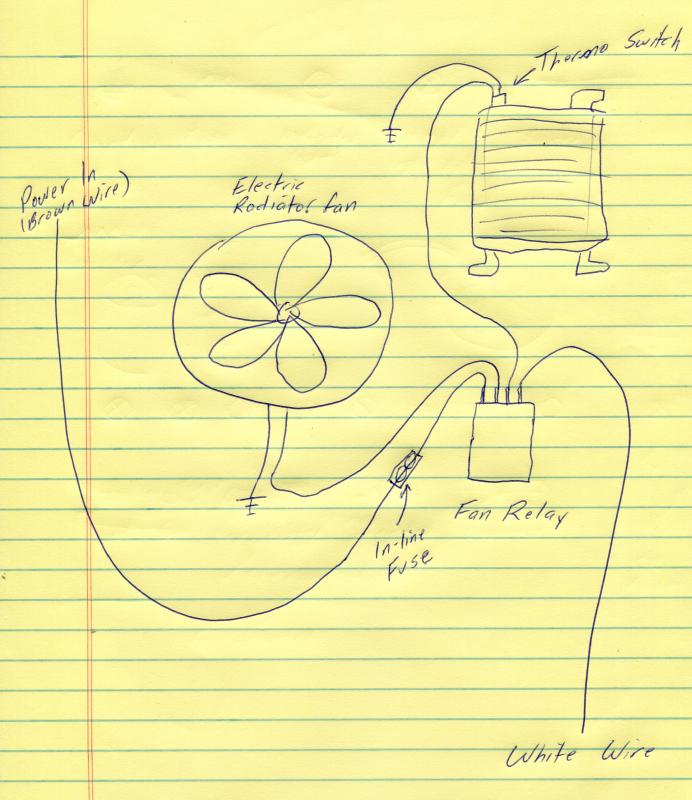 Thermo Switch
Power In
(Brown Wire)
Electric
Radiator fan
Fan Relay
In-line
Fuse
White Wire